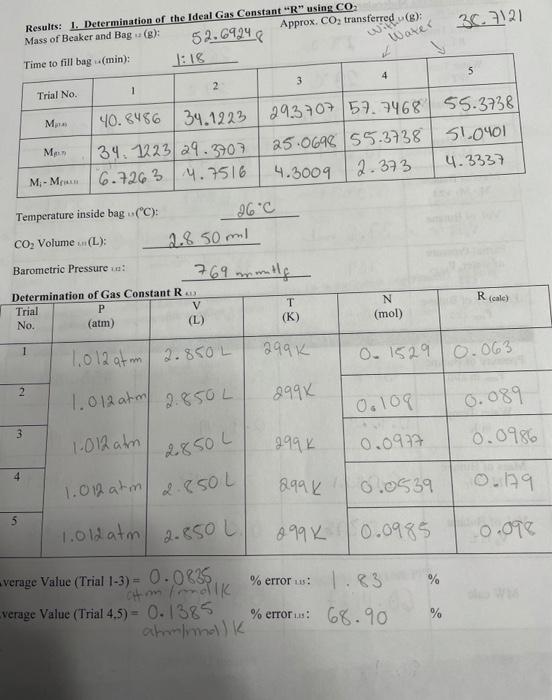 Results: 1. Determination of the Ideal Gas Constant "R" using CO2
Mass of Beaker and Bag (g): 52.6924 g Approx. CO2 transferred (g): 38.7121
with water
Time to fill bag (min): 1:18
Trial No. 1 2 3 4 5
40.8486 34.1223 29.3707 57.7468 55.3738
34.1223 29.3707 25.0698 55.3738 51.0401
6.7263 4.7516 4.3009 2.373 4.3337
Temperature inside bag (°C): 26°C
CO2 Volume (L): 2.850 ml
Barometric Pressure : 769 mmHg
Determination of Gas Constant R
Trial No. P (atm) V (L) T (K) N (mol) R (calc)
1 1.012 atm 2.850 L 299 K 0.1529 0.063
2 1.012 atm 2.850 L 299K 0.108 0.089
3 1.012 atm 2.850 L 299 K 0.0977 0.0986
4 1.012 atm 2.850 L 299 K 0.0539 0.179
5 1.012 atm 2.850 L 299 K 0.0985 0.098
verage Value (Trial 1-3) = 0.0835 % error : 1.83 %
verage Value (Trial 4,5) = 0.1385 % error : 68.90 %